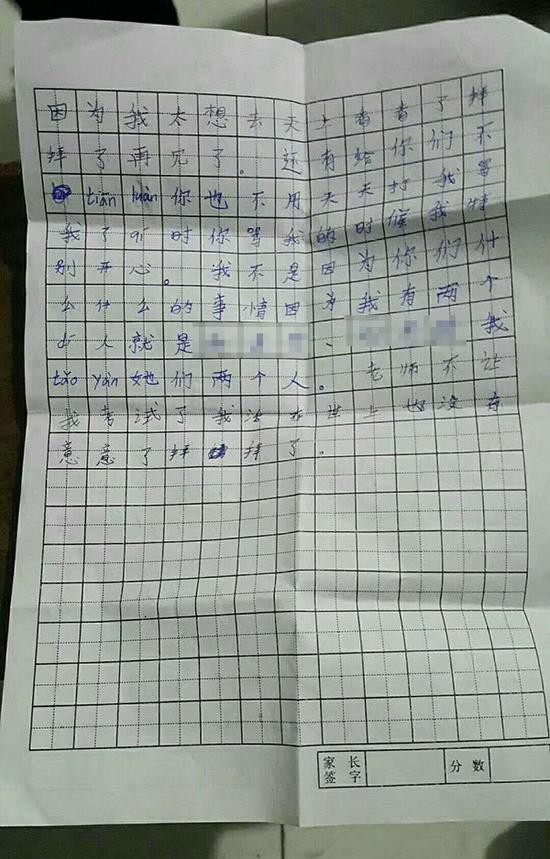 因为我太想去天上看看了拜
拜了再见了。还有给你们不
tiān luàn你也不用天天打我骂
我了听时你骂我的时候我特
别开心。我不是因为你们什
么什么的事情因为我有两个
人就是、我
tǎo yàn她们两个人。老师不让
我考试了我活在世上也没有
意意了拜拜了.
家长
签字
分数